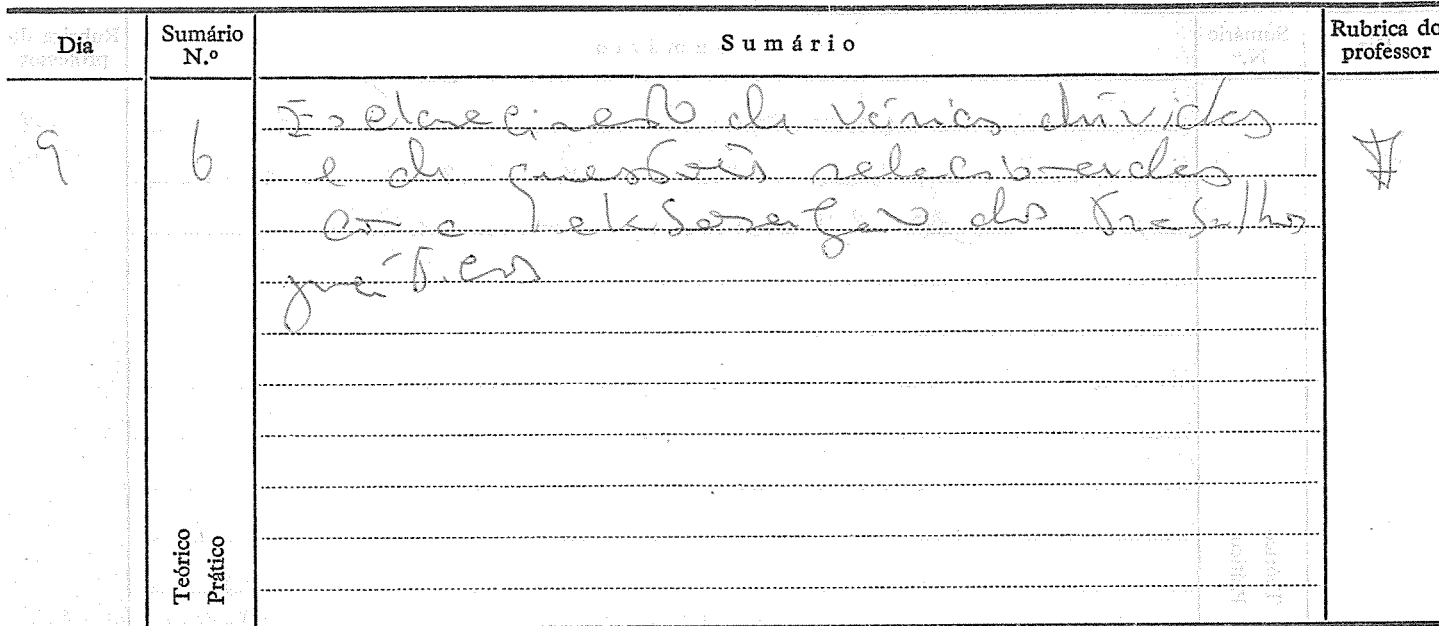 Dia
Sumário
N.º
Sumário
Rubrica do
professor
9
6
Esclarecimento de várias dúvidas
e de questões relacionadas
com a elaboração dos trabalhos
práticos
Teórico
Prático